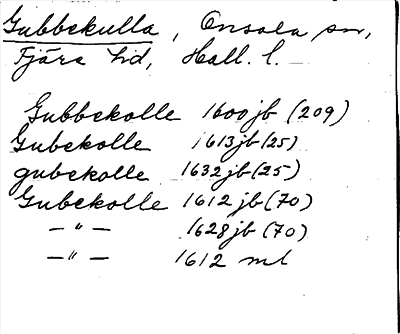 Gubbekulla, Onsala sn,
Fjäre hd, Hall. l.
Gubbekolle 1600 jb (209)
Gubekolle 1613 jb (25)
gubekolle 1632 jb (25)
Gubekolle 1612 jb (70)
— " — 1628 jb (70)
— " — 1612 ml